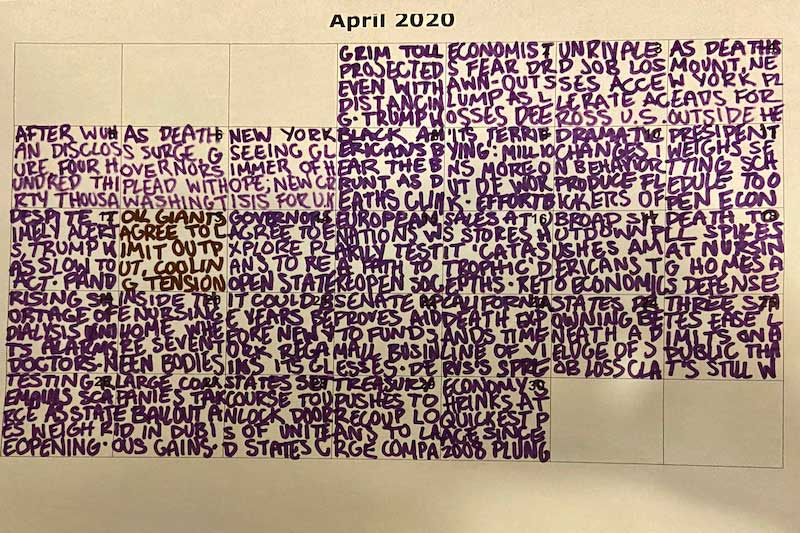 April 2020
GRIM TOLL
PROJECTED
EVEN WITH
DISTANCIN
G. TRUMP W
ECONOMIST
S FEAR DR
AWN-OUT S
LUMP AS L
OSSES DEE
UNRIVALE
D JOB LOS
SES ACCE
LERATE AC
ROSS U.S.
AS DEATHS
MOUNT, NE
W YORK PL
EADS FOR
OUTSIDE HE
AFTER WUH
AN DISCLOS
URE, FOUR H
UNDRED THI
RTY THOUSA
AS DEATH
S SURGE, G
OVERNORS
PLEAD WITH
WASHINGT
NEW YORK
SEEING GL
IMMER OF H
OPE; NEW CR
ISIS FOR U.K
BLACK AM
ERICANS B
EAR THE B
RUNT AS D
EATHS CLIM
'ITS TERRIF
YING': MILLIO
NS MORE O
UT OF WOR
K. EFFORT B
DRAMATIC
CHANGES I
N BEHAVIOR
PRODUCE FL
ICKERS OF
PRESIDENT
WEIGHS SE
TTING SCH
EDULE TO O
PEN ECON
DESPITE T
IMELY ALERT
S, TRUMP W
AS SLOW TO
ACT. PAND
OIL GIANTS
AGREE TO L
IMIT OUTP
UT, COOLIN
G TENSION
GOVERNORS
AGREE TO E
XPLORE PL
ANS TO RE
OPEN STATE
EUROPEAN
NATIONS W
ARILY TEST
A PATH TO
REOPEN SOC
SALES AT U
S STORES H
IT CATAS
TROPHIC D
EPTHS. RET
BROAD SH
UTDOWN P
USHES AM
ERICANS T
O ECONOMIC
DEATH TO
LL SPIKES
AT NURSIN
G HOMES A
S DEFENSE
RISING SH
ORTAGE OF
DIALYSIS UNI
TS ALARMS
DOCTORS.
INSIDE TH
E NURSING
HOME WHE
RE SEVENT
EEN BODIES
IT COULD B
E YEARS BE
FORE NEW Y
ORK REGA
INS ITS GL
SENATE AP
PROVES AID
TO FUND S
MALL BUSIN
ESSES. DE
CALIFORNIA
DEATH EXP
ANDS TIME
LINE OF VI
RUS'S SPRE
STATES DR
OWNING BE
NEATH A D
ELUGE OF J
OB LOSS CLA
THREE STA
TES EASE L
IMITS ON B
PUBLIC THA
T'S STILL W
TESTING R
EMAINS SCA
RCE AS STATE
S WEIGH R
EOPENING.
LARGE COM
PANIES TAK
E BAILOUT A
ID IN DUBI
OUS GAINS.
STATES SET
COURSE TO U
NLOCK DOOR
S OF UNITE
D STATES C
TREASURY
PUSHES TO
RECOUP LO
ANS TO LA
RGE COMPA
ECONOMY S
HRINKS AT
QUICKEST P
ACE SINCE
2008 PLUNG
30